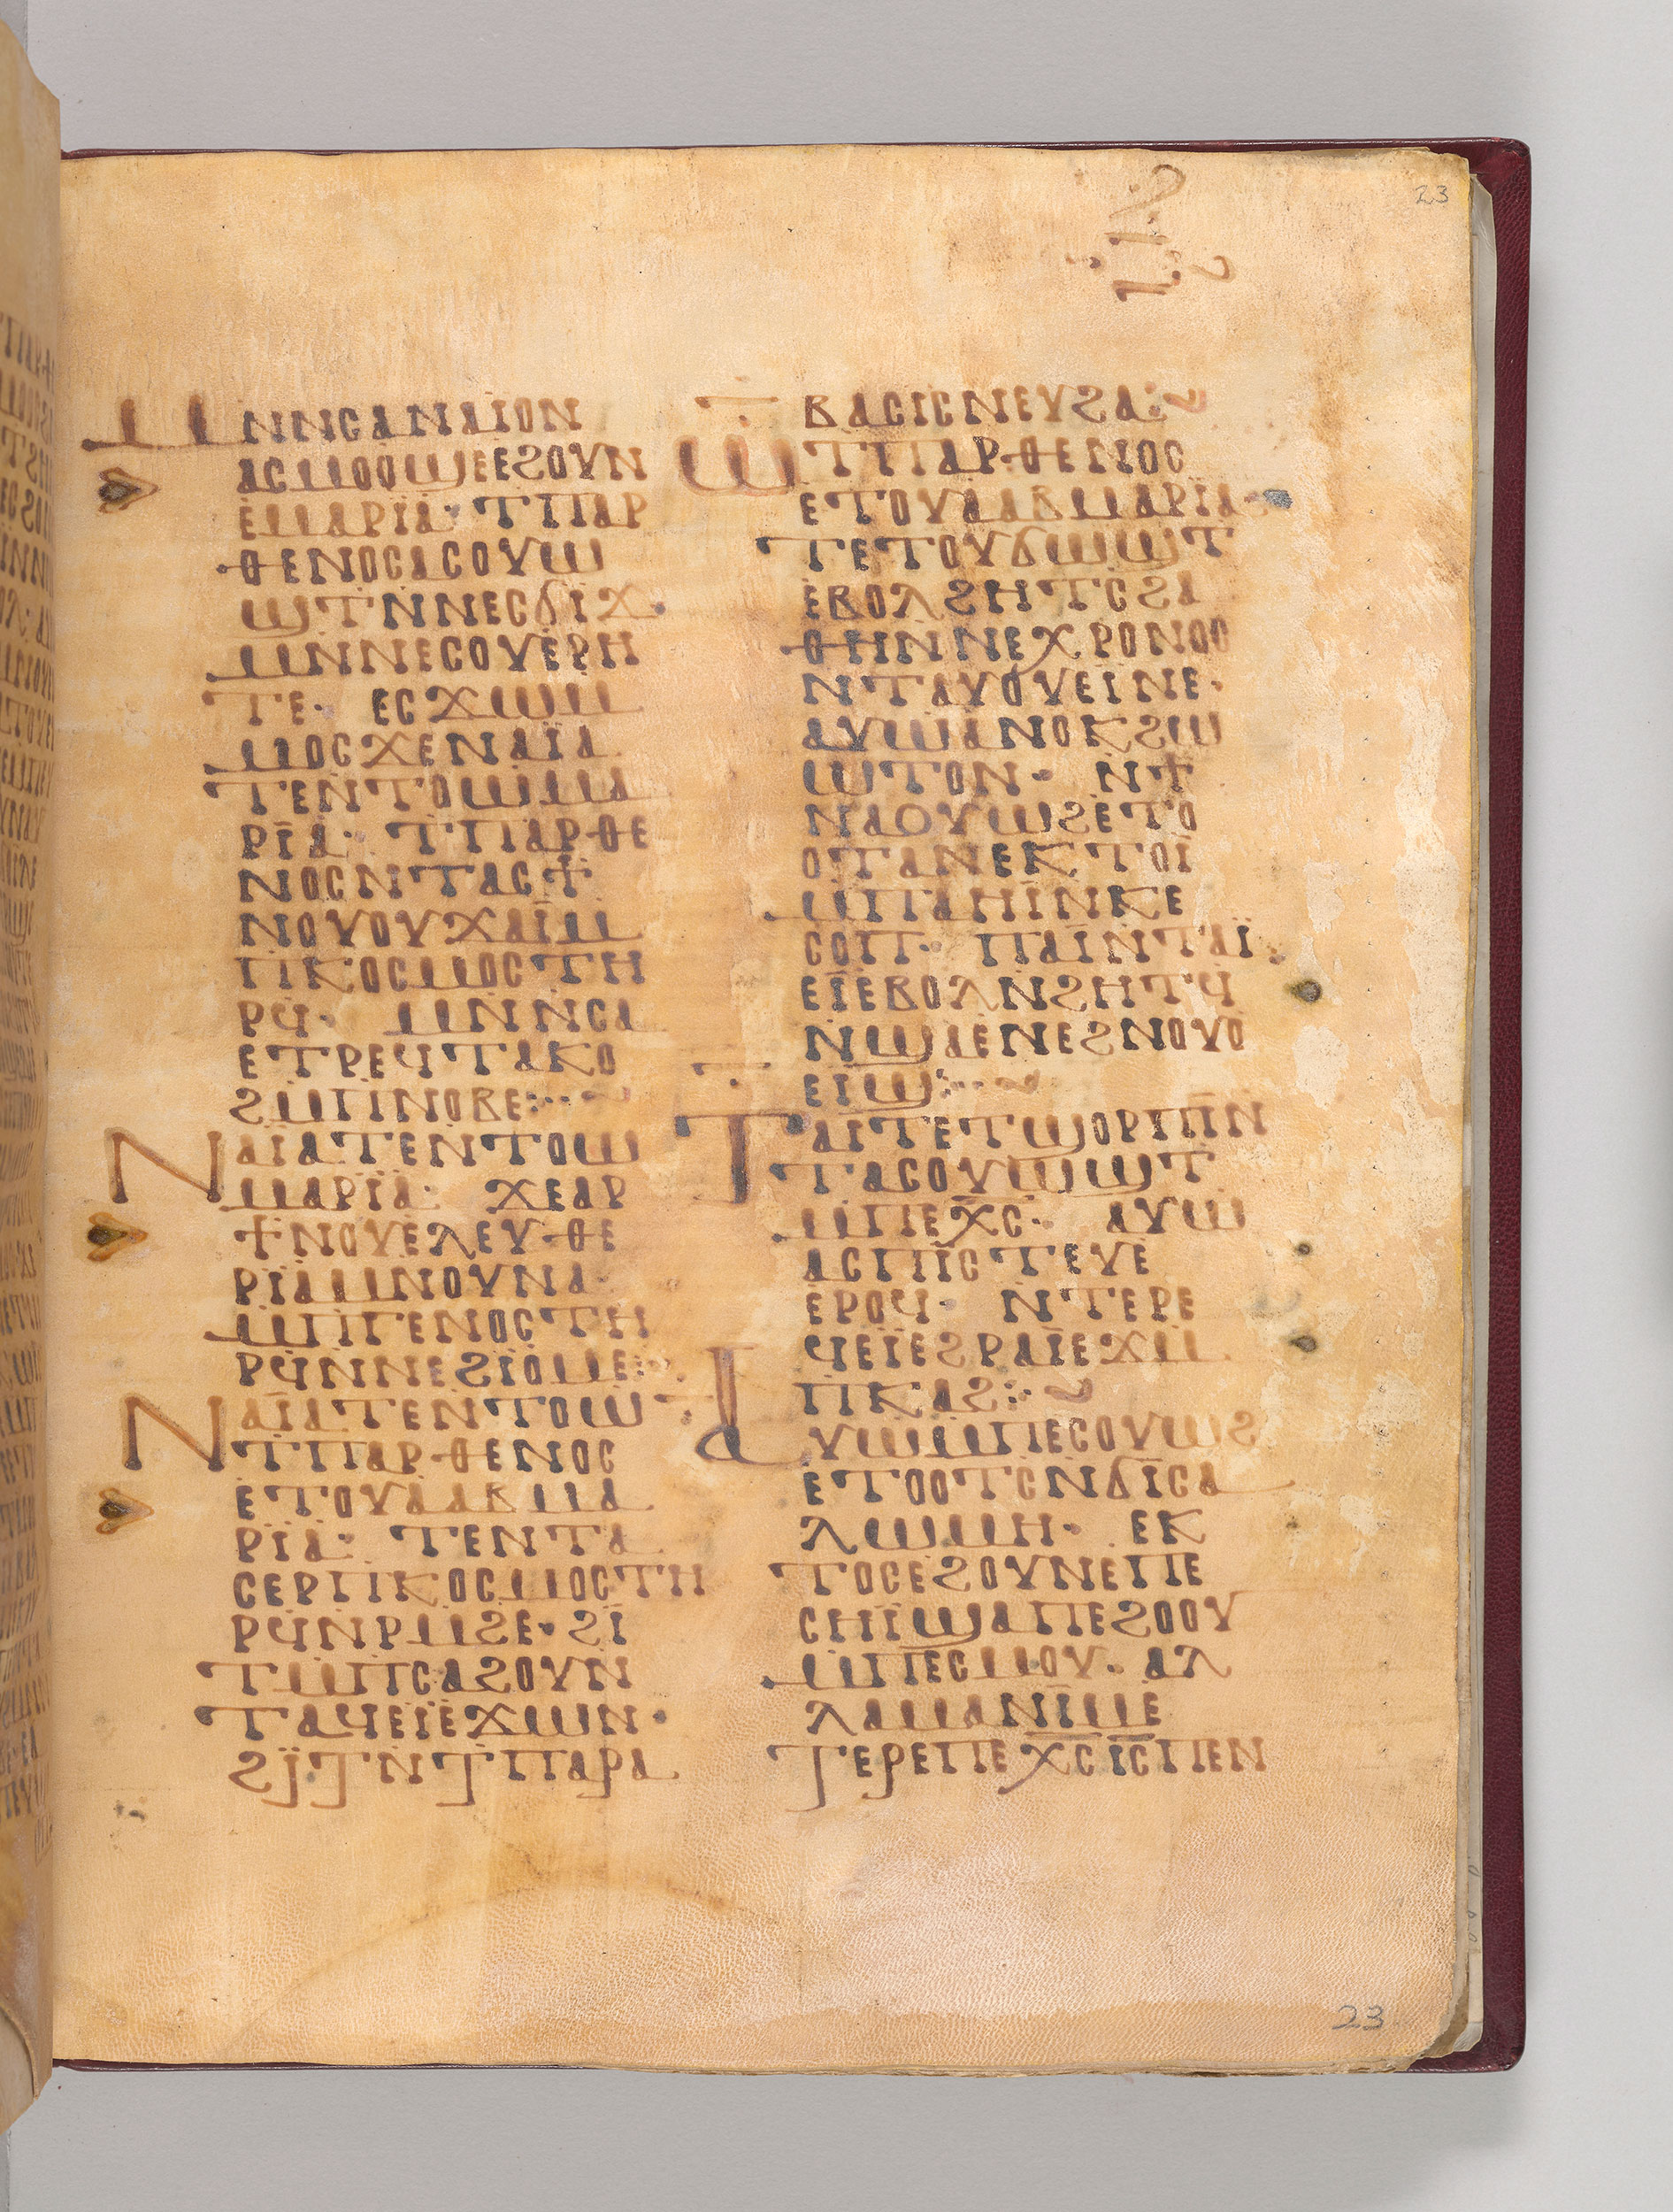 23
ⲘⲚⲚⲤⲀⲚⲀⲒⲞⲚ
ⲀⲤⲘⲞⲞϢⲈⲈϨⲞⲨⲚ
ⲈⲘⲀⲢⲒⲀ· ⲦⲠⲀⲢ
ⲐⲈⲚⲞⲤⲀⲤⲞⲨⲰ
ϢⲦⲚⲚⲈⲤϬⲒϪ·
ⲘⲚⲚⲈⲤⲞⲨⲈⲢⲎ
ⲦⲈ· ⲈⲤϪⲰⲘ
ⲘⲞⲤϪⲈⲚⲀⲒⲀ
ⲦⲈⲚⲦⲞⲰⲘⲀ
ⲢⲒⲀ· ⲦⲠⲀⲢⲐⲈ
ⲚⲞⲤⲚⲦⲀⲤϮ
ⲚⲞⲨⲞⲨϪⲀⲒⲘ
ⲠⲔⲞⲤⲘⲞⲤⲦⲎ
ⲢϤ· ⲘⲚⲚⲤⲀ
ⲈⲦⲢⲈϤⲦⲀⲔⲞ
ϨⲘⲠⲚⲞⲂⲈ:··~
ⲚⲀⲒⲀⲦⲈⲚⲦⲞⲰ
ⲘⲀⲢⲒⲀ· ϪⲈⲀⲢ
ϮⲚⲞⲨⲈⲖⲈⲨⲐⲈ
ⲢⲒⲀⲘⲚⲞⲨⲚⲀ·
ⲘⲠⲄⲈⲚⲞⲤⲦⲎ
ⲢϤⲚⲚⲈϨⲒⲞⲘⲈ:·
ⲚⲀⲒⲀⲦⲈⲚⲦⲞⲰ
ⲦⲠⲀⲢⲐⲈⲚⲞⲤ
ⲈⲦⲞⲨⲀⲀⲂⲘⲀ
ⲢⲒⲀ· ⲦⲈⲚⲦⲀ
ⲤⲈⲢⲠⲔⲞⲤⲘⲞⲤⲦⲎ
ⲢϤⲚⲢⲘϨⲈ· ϨⲒ
ⲦⲘⲠⲤⲀϨⲞⲨⲚ
ⲦⲀϤⲈⲒⲈϪⲰⲚ·
ϨⲒⲦⲚⲦⲠⲀⲢⲀ
ⲂⲀⲤⲒⲤⲚⲈⲨϨⲀ:~
ⲰⲦⲠⲀⲢⲐⲈⲚⲞⲤ
ⲈⲦⲞⲨⲀⲀⲂⲘⲀⲢⲒⲀ·
ⲦⲈⲦⲞⲨϬⲰϢⲦ
ⲈⲂⲞⲖϨⲎⲦⲤϨⲀ
ⲐⲎⲚⲚⲈⲬⲢⲞⲚⲞⲤ
ⲚⲦⲀⲨⲞⲨⲈⲒⲚⲈ·
ⲀⲨⲰⲀⲚⲞⲔϨⲰ
ⲰⲦⲞⲚ· ⲚϮ
ⲚⲀⲞⲨⲰϨⲈⲦⲞ
ⲞⲦⲀⲚⲈⲔⲦⲞⲒ
ⲘⲠⲀⲎⲒⲚⲔⲈ
ⲤⲞⲠ· ⲠⲀⲒⲚⲦⲀⲒ·
ⲈⲒⲈⲂⲞⲖⲚϨⲎⲦϤ
ⲚϢⲀⲈⲚⲈϨⲚⲞⲨⲞ
ⲈⲒϢ:··~
ⲦⲀⲒⲦⲈⲦϢⲞⲢⲠⲚ
ⲦⲀⲤⲞⲨⲰϢⲦ
ⲘⲠⲈⲬ̅Ⲥ̅· ⲀⲨⲰ
ⲀⲤⲠⲒⲤⲦⲈⲨⲈ
ⲈⲢⲞϤ· ⲚⲦⲈⲢⲈ
ϤⲈⲒⲈϨⲢⲀⲒⲈϪⲘ
ⲠⲔⲀϨ:·~
ⲀⲨⲰⲘⲠⲈⲤⲞⲨⲰϨ
ⲈⲦⲞⲞⲦⲤⲚϬⲒⲤⲀ
ⲖⲰⲘⲎ· ⲈⲔ
ⲦⲞⲤⲈϨⲞⲨⲚⲈⲠⲈ
ⲤⲎⲒϢⲀⲠⲈϨⲞⲞⲨ
ⲘⲠⲈⲤⲘⲞⲨ· ⲀⲖ
ⲖⲀⲘⲀⲚⲒⲘⲈ
ⲦⲈⲢⲈⲠⲈⲬ̅Ⲥ̅Ⲓ̅Ⲥ̅ⲠⲈⲚ
23